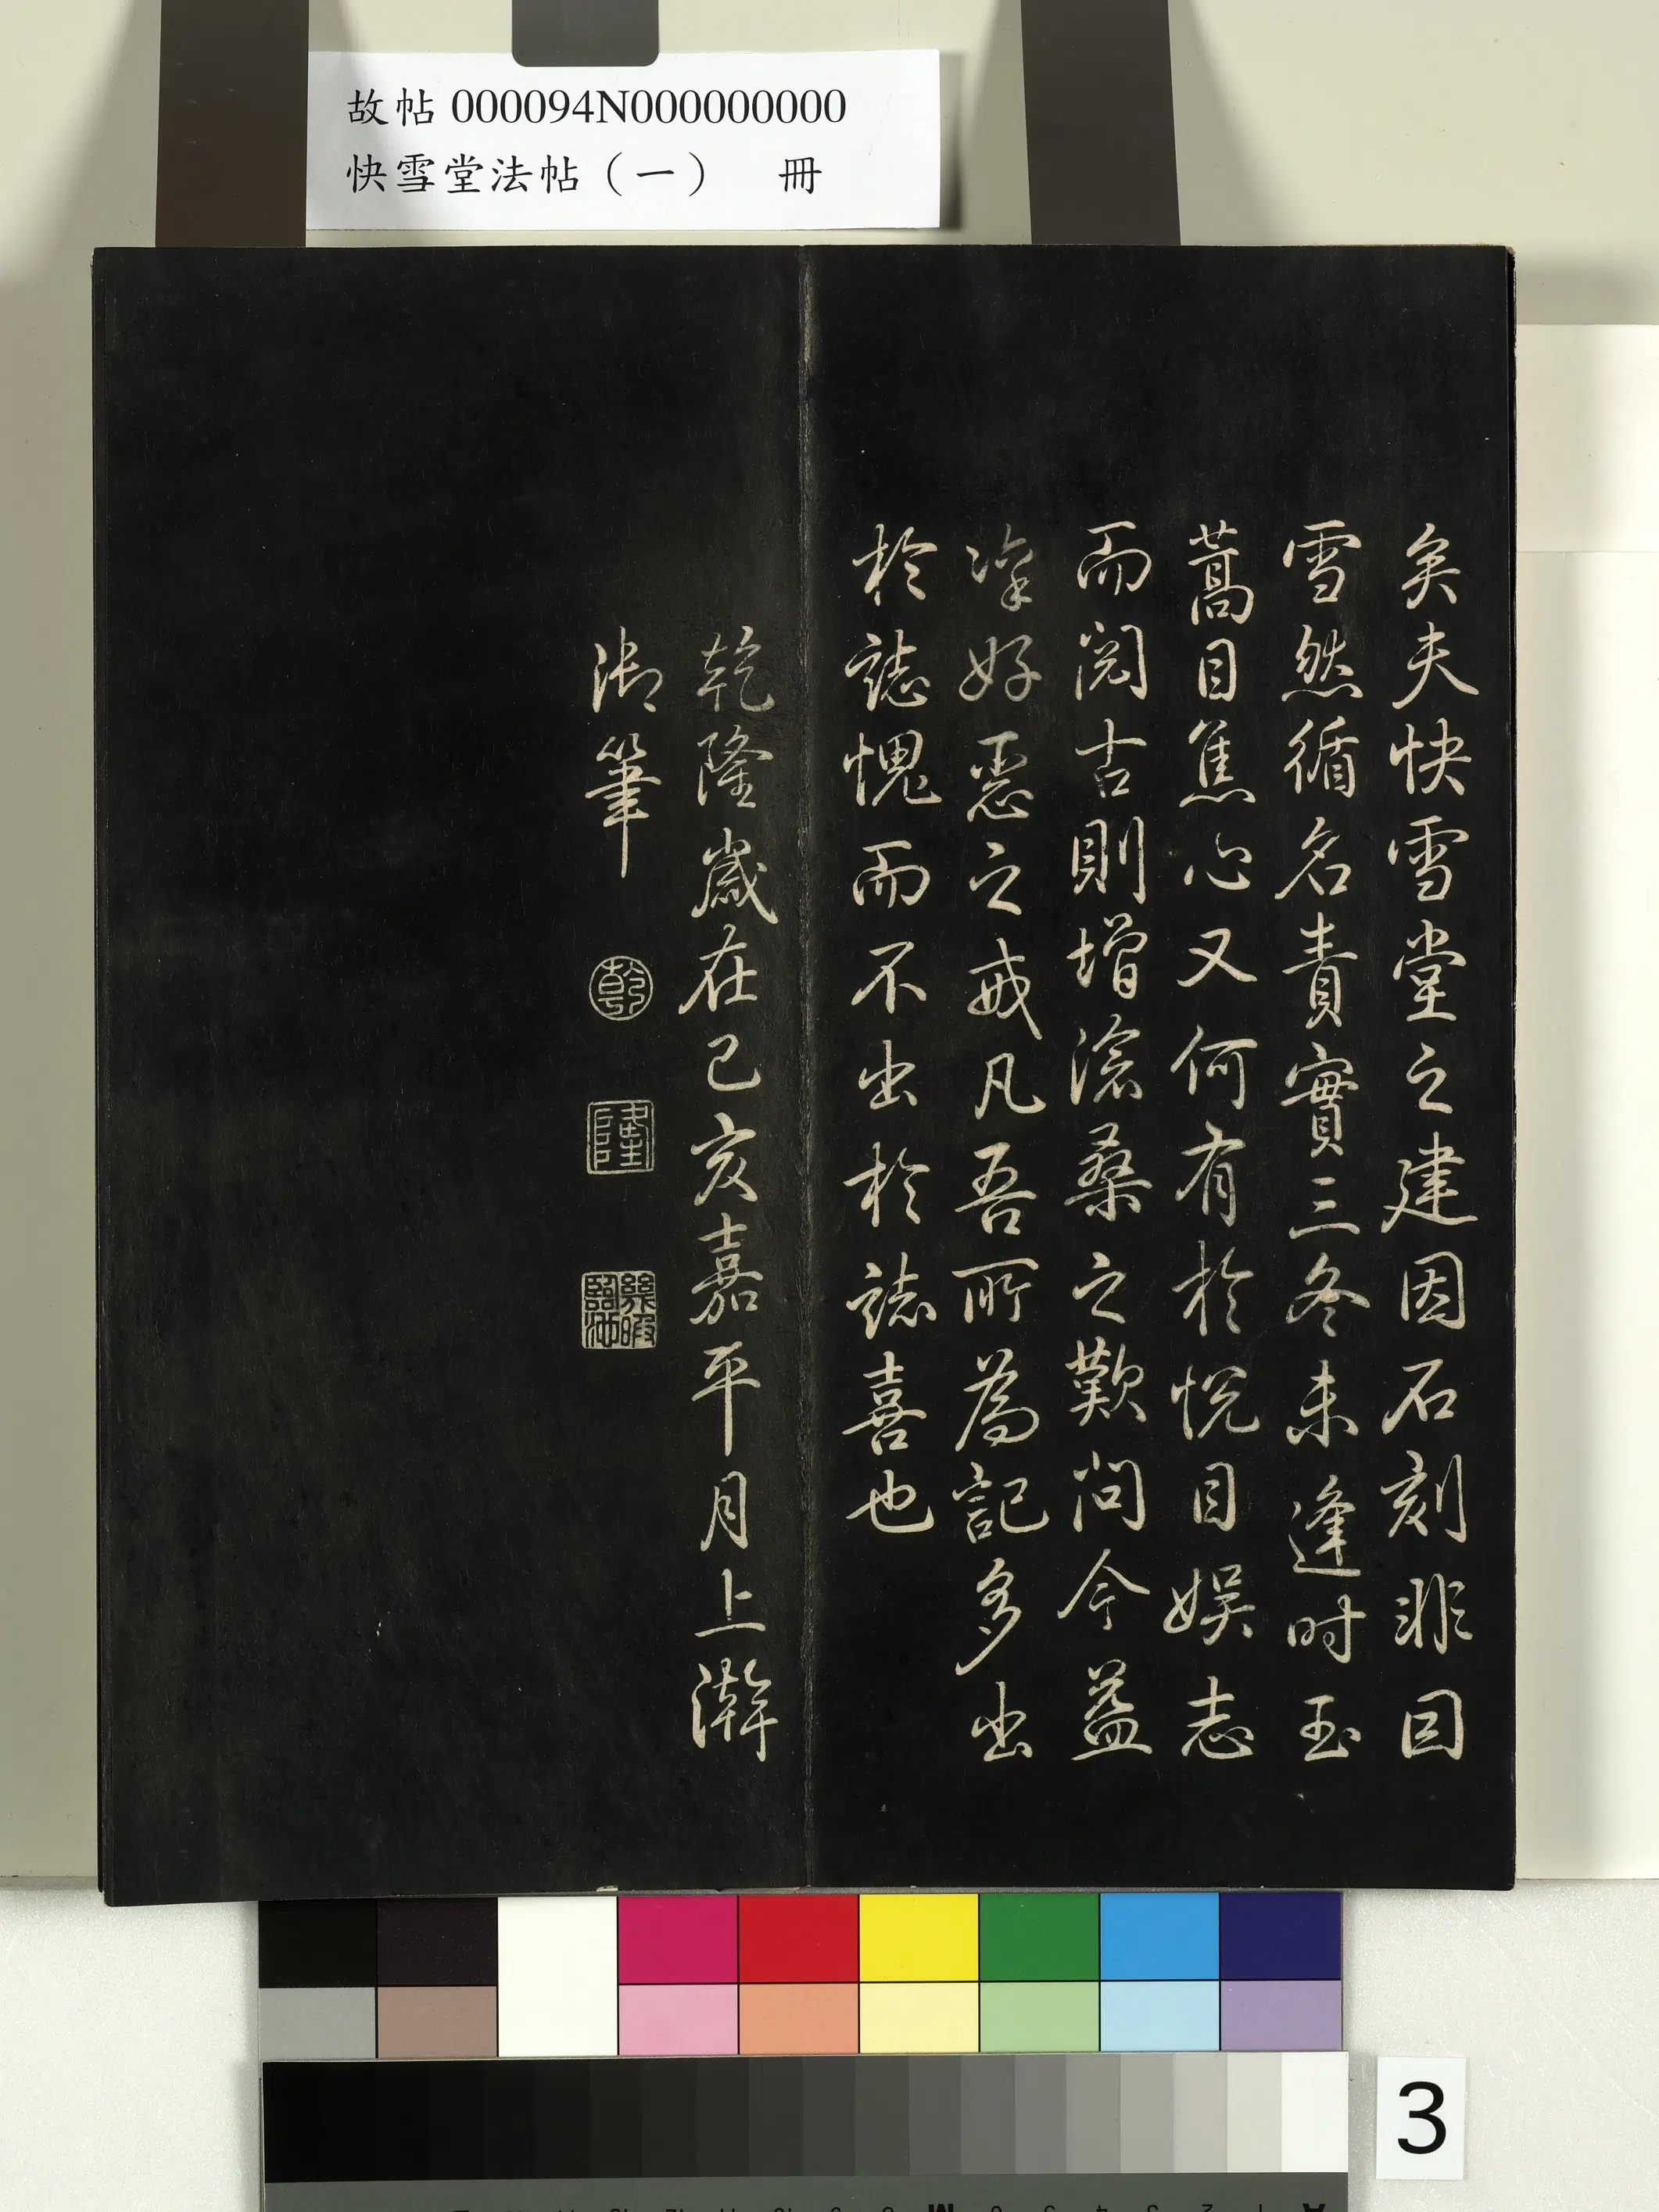 故帖 000094N000000000
快雪堂法帖（一） 冊
矣夫快雪堂之建因石刻非因
雪然循名責實三冬未逢时玉
蒿目焦心又何有於悦目娱志
而閲古則增滄桑之歎问今益
深好惡之戒凡吾所為記多出
於誌愧而不出於誌喜也
乾隆歲在己亥嘉平月上澣
御筆
乾
隆
幾暇臨池
3